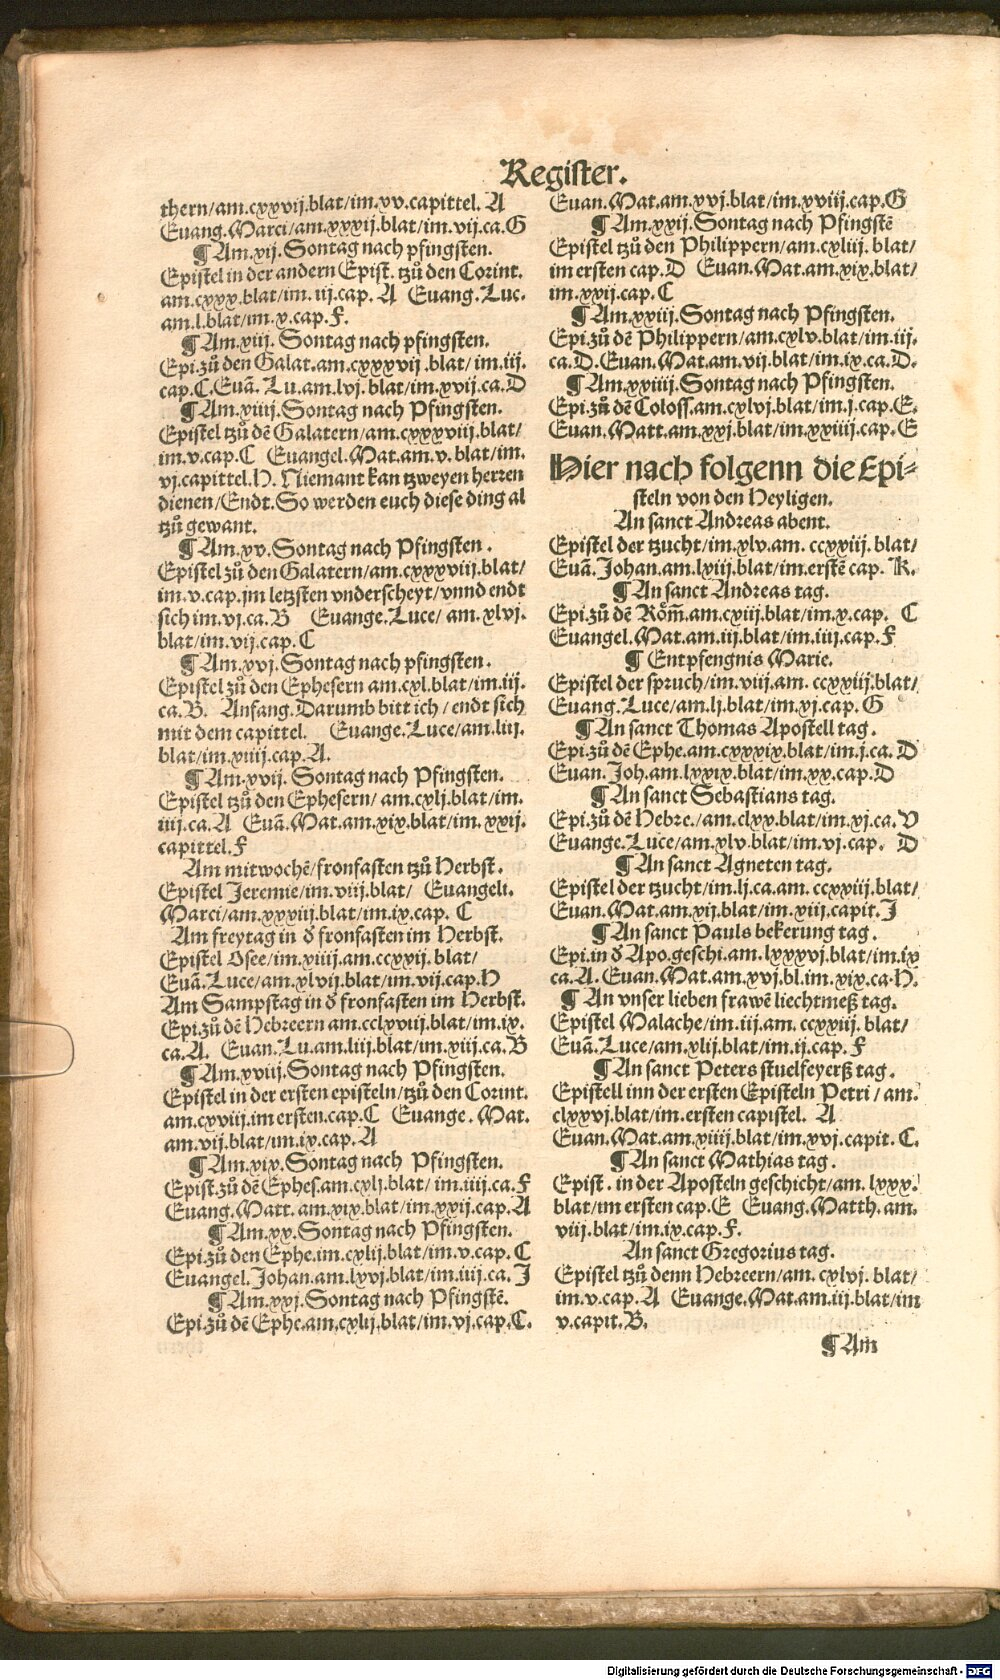 Register.
thern/am.cxxvij.blat/im.xv.capittel. A
Euang.Marci/am.xxxij.blat/im.vij.ca.G
¶Am.xij.Sontag nach pfingsten.
Epistel in der andern Epist. tzů den Corint.
am.cxxx.blat/im.iij.cap. A Euang.Luc.
am.l.blat/im.x.cap.F.
¶Am.xiij. Sontag nach pfingsten.
Epi.zů den Galat.am.cxxxvij.blat/im.iij.
cap.C.Euã. Lu.am.lvj.blat/im.xvij.ca.D
¶Am.xiiij.Sontag nach Pfingsten.
Epistel tzů dẽ Galatern/am.cxxxviij.blat/
im.v.cap.C Euangel.Mat.am.v.blat/im.
vj.capittel.H. Niemant kan tzweyen herren
dienen/Endt.So werden euch diese ding al
tzů gewant.
¶Am.xv.Sontag nach Pfingsten.
Epistel zů den Galatern/am.cxxxviij.blat/
im.v.cap.jm letzsten vnderscheyt/vnnd endt
sich im.vj.ca.B Euange.Luce/ am.xlvj.
blat/im.vij.cap.C
¶Am.xvj.Sontag nach pfingsten.
Epistel zů den Ephesern am.cxl.blat/im.iij.
ca.B. Anfang.Darumb bitt ich/endt sich
mit dem capittel. Euange.Luce/am.liij.
blat/im.xiiij.cap.A.
¶Am.xvij. Sontag nach Pfingsten.
Epistel tzů den Ephesern/ am.cxlj.blat/im.
iiij.ca.A Euã.Mat.am.xix.blat/im.xxij.
capittel.F
Am mitwochẽ/fronfasten tzů Herbst.
Epistel Jeremie/im.viij.blat/ Euangeli.
Marci/am.xxxiij.blat/im.ix.cap. C
Am freytag in d̃ fronfasten im Herbst.
Epistel Osee/im.xiiij.am.ccxxij.blat/
Euã.Luce/am.xlvij.blat/im.vij.cap.H
Am Sampstag in d̃ fronfasten im Herbst.
Epi.zů dẽ Hebreern am.cclxviij.blat/im.ix.
ca.A. Euan.Lu.am.liij.blat/im.xiij.ca.B
¶Am.xviij.Sontag nach Pfingsten.
Epistel in der ersten episteln/tzů den Corint.
am.cxviij.im ersten.cap.C Euange.Mat.
am.vij.blat/im.ix.cap.A
¶Am.xix.Sontag nach Pfingsten.
Epist.zů dẽ Ephes.am.cxlj.blat/im.iiij.ca.F
Euang.Matt.am.xix.blat/im.xxij.cap.A
¶Am.xx.Sontag nach Pfingsten.
Epi.zů den Ephe.im.cxlij.blat/im.v.cap.C
Euangel.Johan.am.lxvj.blat/im.iiij.ca.J
¶Am.xxj.Sontag nach Pfingstẽ.
Epi.zů dẽ Ephe.am.cxlij.blat/im.vj.cap.C.
Euan.Mat.am.xvj.blat/im.xviij.cap.G
¶Am.xxij.Sontag nach Pfingstẽ
Epistel tzů den Philippern/am.cxliij.blat/
im ersten cap.D Euan.Mat.am.xix.blat/
im.xxij.cap.C
¶Am.xxiij.Sontag nach Pfingsten.
Epi.zů dẽ Philippern/am.cxlv.blat/im.iij.
ca.D.Euan.Mat.am.vij.blat/im.ix.ca.D.
¶Am.xxiiij.Sontag nach Pfingsten.
Epi.zů dẽ Coloss.am.cxlvj.blat/im.j.cap.E.
Euan.Matt.am.xxj.blat/im.xxiiij.cap.E
Hier nach folgenn die Epi-
steln von den Heyligen.
An sanct Andreas abent.
Epistel der tzucht/im.xlv.am.ccxxiij.blat/
Euã.Johan.am.lxiij.blat/im.erstẽ cap. K.
¶An sanct Andreas tag.
Epi.zů dẽ Röm̃.am.cxiij.blat/im.x.cap. C
Euangel.Mat.am.iij.blat/im.iiij.cap.F
¶Entpfengnis Marie.
Epistel der spruch/im.viij.am.ccxxiij.blat/
Euang.Luce/am.lj.blat/im.xj.cap.G
¶An sanct Thomas Apostell tag.
Epi.zů dẽ Ephe.am.cxxxix.blat/im.j.ca.D
Euan.Joh.am.lxxix.blat/im.xx.cap.D
¶An sanct Sebastians tag.
Epi.zů dẽ Hebre./am.clxx.blat/im.xj.ca.V
Euange.Luce/am.xlv.blat/im.vj.cap. D
¶An sanct Agneten tag.
Epistel der tzucht/im.lj.ca.am.ccxxiij.blat/
Euan.Mat.am.xij.blat/im.xiij.capit.J
¶An sanct Pauls bekerung tag.
Epi.in d̃ Apo.geschi.am.lxxxvj.blat/im.ix
ca.A.Euan.Mat.am.xvj.bl.im.xix.ca.H.
¶An vnser lieben frawẽ liechtmeß tag.
Epistel Malache/im.iij.am.ccxxiij.blat/
Euã.Luce/am.xlij.blat/im.ij.cap. F
¶An sanct Peters stuelfeyerß tag.
Epistell inn der ersten Episteln Petri/am.
clxxvj.blat/im.ersten capistel. A
Euan.Mat.am.xiiij.blat/im.xvj.capit.C.
¶An sanct Mathias tag.
Epist. in der Aposteln geschicht/am.lxxx.
blat/im ersten cap.E Euang.Matth.am.
viij.blat/im.ix.cap.F.
An sanct Gregorius tag.
Epistel tzů denn Hebreern/am. cxlvj.blat/
im.v.cap.A Euange.Mat.am.iij.blat/im
v.capit.B.
¶Am
Digitalisierung gefördert durch die Deutsche Forschungsgemeinschaft - DFG